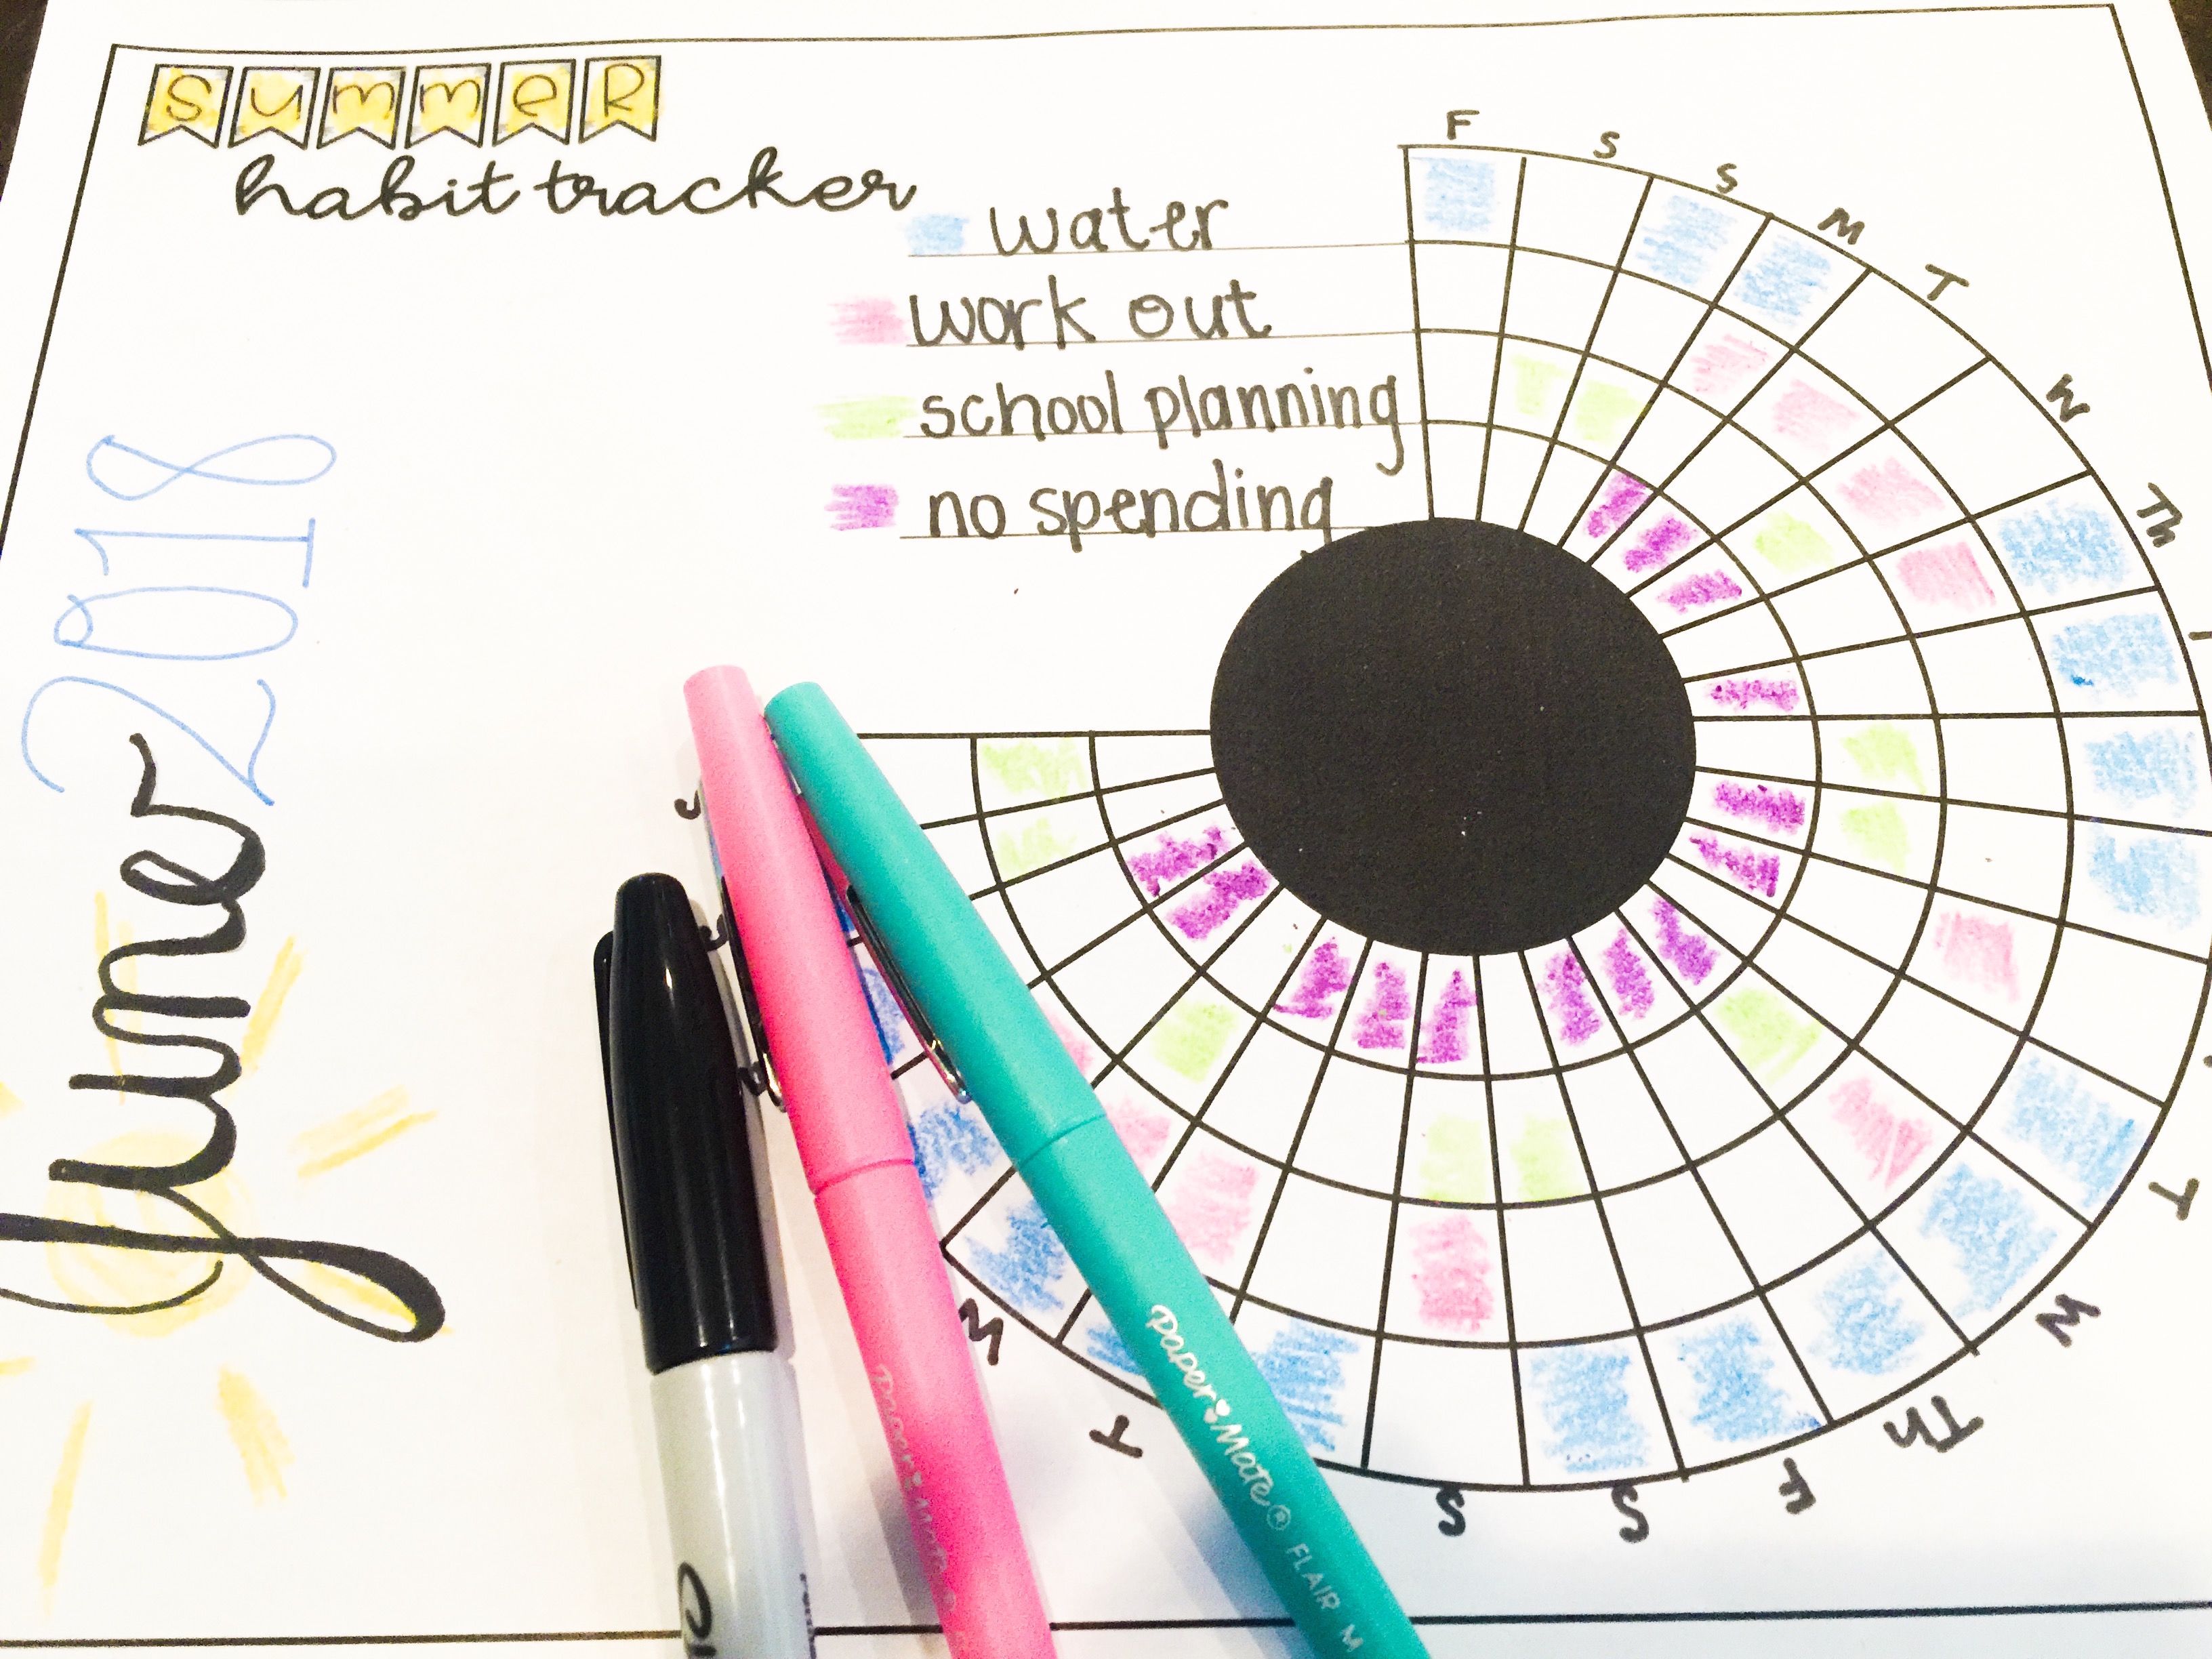 SUMMER
habit tracker
water
work out
school planning
no spending
June 2018
F
S
S
M
T
W
Th
T
W
Th
F
S
S
T
W
Paper Mate
Paper Mate® FLAIR M